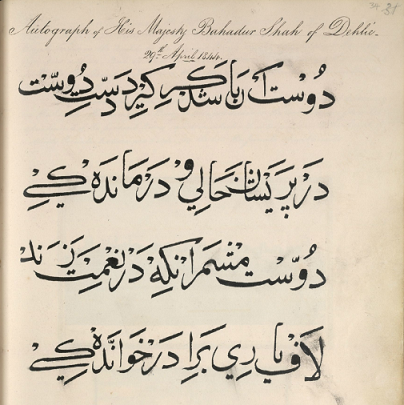 Autograph of His Majesty Bahadur Shah of Dehlie.
29th April 1844.
دُوست آن باشد که کیرد دست دُوست
در پریشان حالی و درمانده کی
دُوست مشمر انکه در نعمت زند
لاف یاری برادر خوانده کی